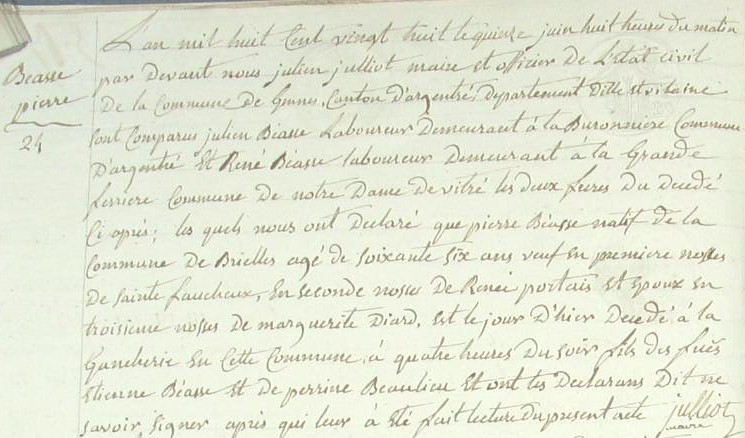 Béasse
pierre
24
L'an mil huit Cent vingt huit le quinze juin huit heures du matin
par Devant nous julien julliot maire et officier De L'Etat civil
De la Commune De Gennes, Canton D'argentré, Departement Dille et vilaine
sont Comparus julien Béasse Laboureur Demeurant à la Buronniere Commune
D'argentré Et René Béasse laboureur Demeurant à la Grande
ferriere Commune De notre Dame De vitré les deux freres Du Decedé
Ci après; les quels nous ont Declaré que pierre Béasse natif de la
Commune De Brielles agé de soixante six ans veuf En premiere nosses
De sainte faucheux, En seconde nosses De Reneé portais Et Epoux en
troisieme nosses De marguerite Diard, Est le jour D'hier Decedé, à la
Gancherie En Cette Commune, à quatre heures Du soir fils des fués
Etienne Béasse Et De perrine Beaulieu Et ont les Declarans Dit ne
savoir signer après qui leur à Eté fait lecture Du present acte julliot
maire